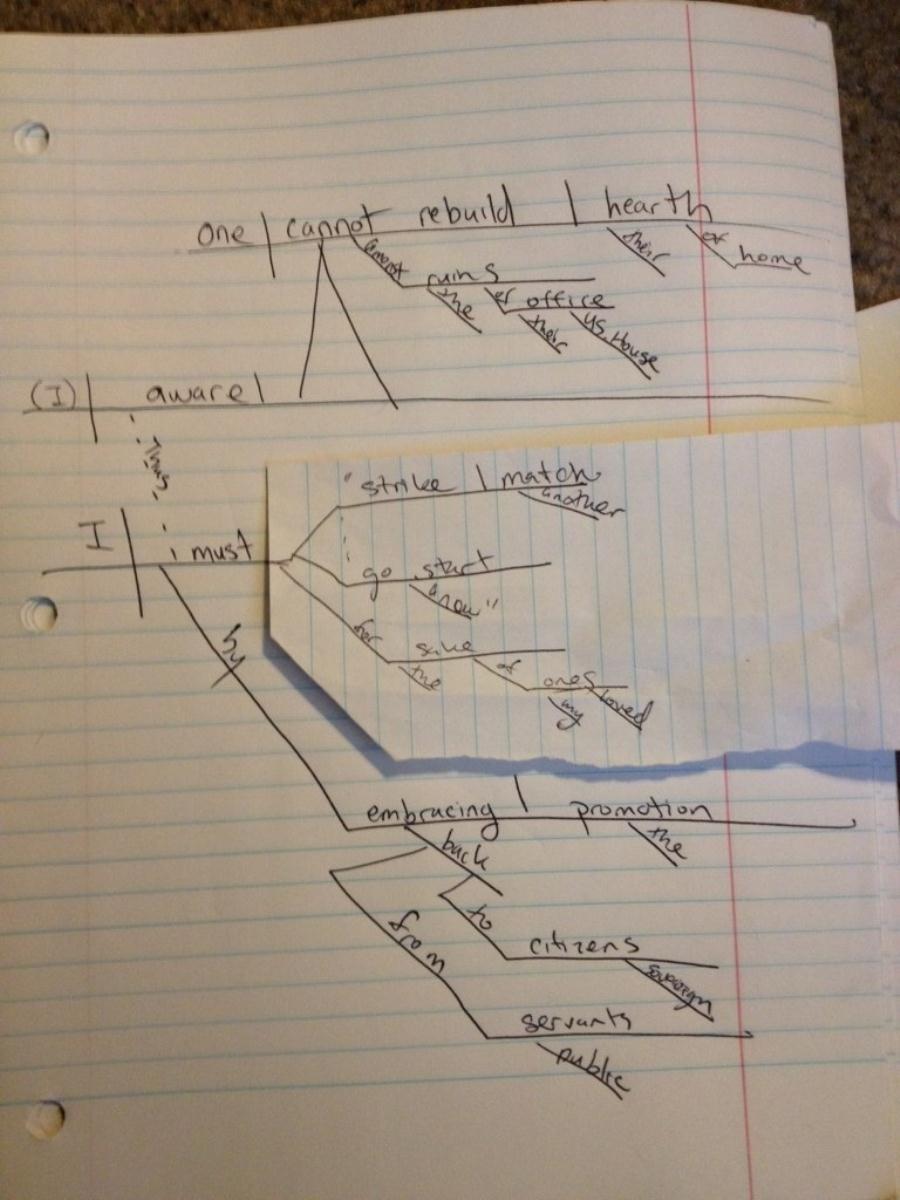 one cannot rebuild hearth
their of home
amongst ruins
the of office
their U.S. House
(I) aware
thus
I must
"strike match
another
go start
anew"
for sake
the of ones
my loved
by
embracing promotion
back the
to
citizens
sovereign
from
servants
public